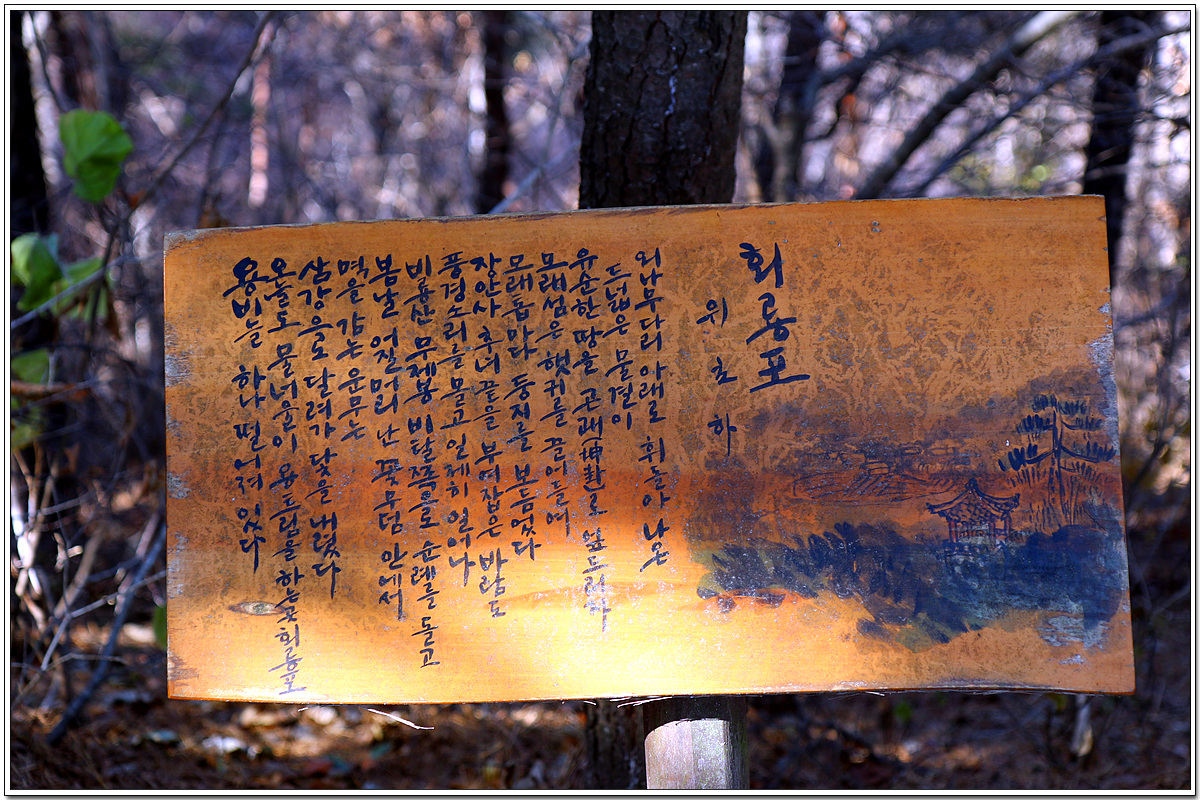 회룡포
위 초 하
외나무다리 아래로 휘돌아 나온
드넓은 물결이
유순한 땅을 곤괘(坤卦)로 엎드리자
모래섬은 햇귀를 끌어들여
모래톱마다 둥지를 보듬었다
장안사 추녀 끝을 부여잡은 바람도
풍경소리를 몰고 일제히 일어나
비룡산 무제봉 비탈쪽으로 순례를 돌고
봄날 어질머리 난 꽃무덤 안에서
멱을 감는 운무는
삼강으로 달려가 닻을 내렸다
오늘도 물너울이 용트림을 하는 곳 회룡포
용비늘 하나 떨어져 있다